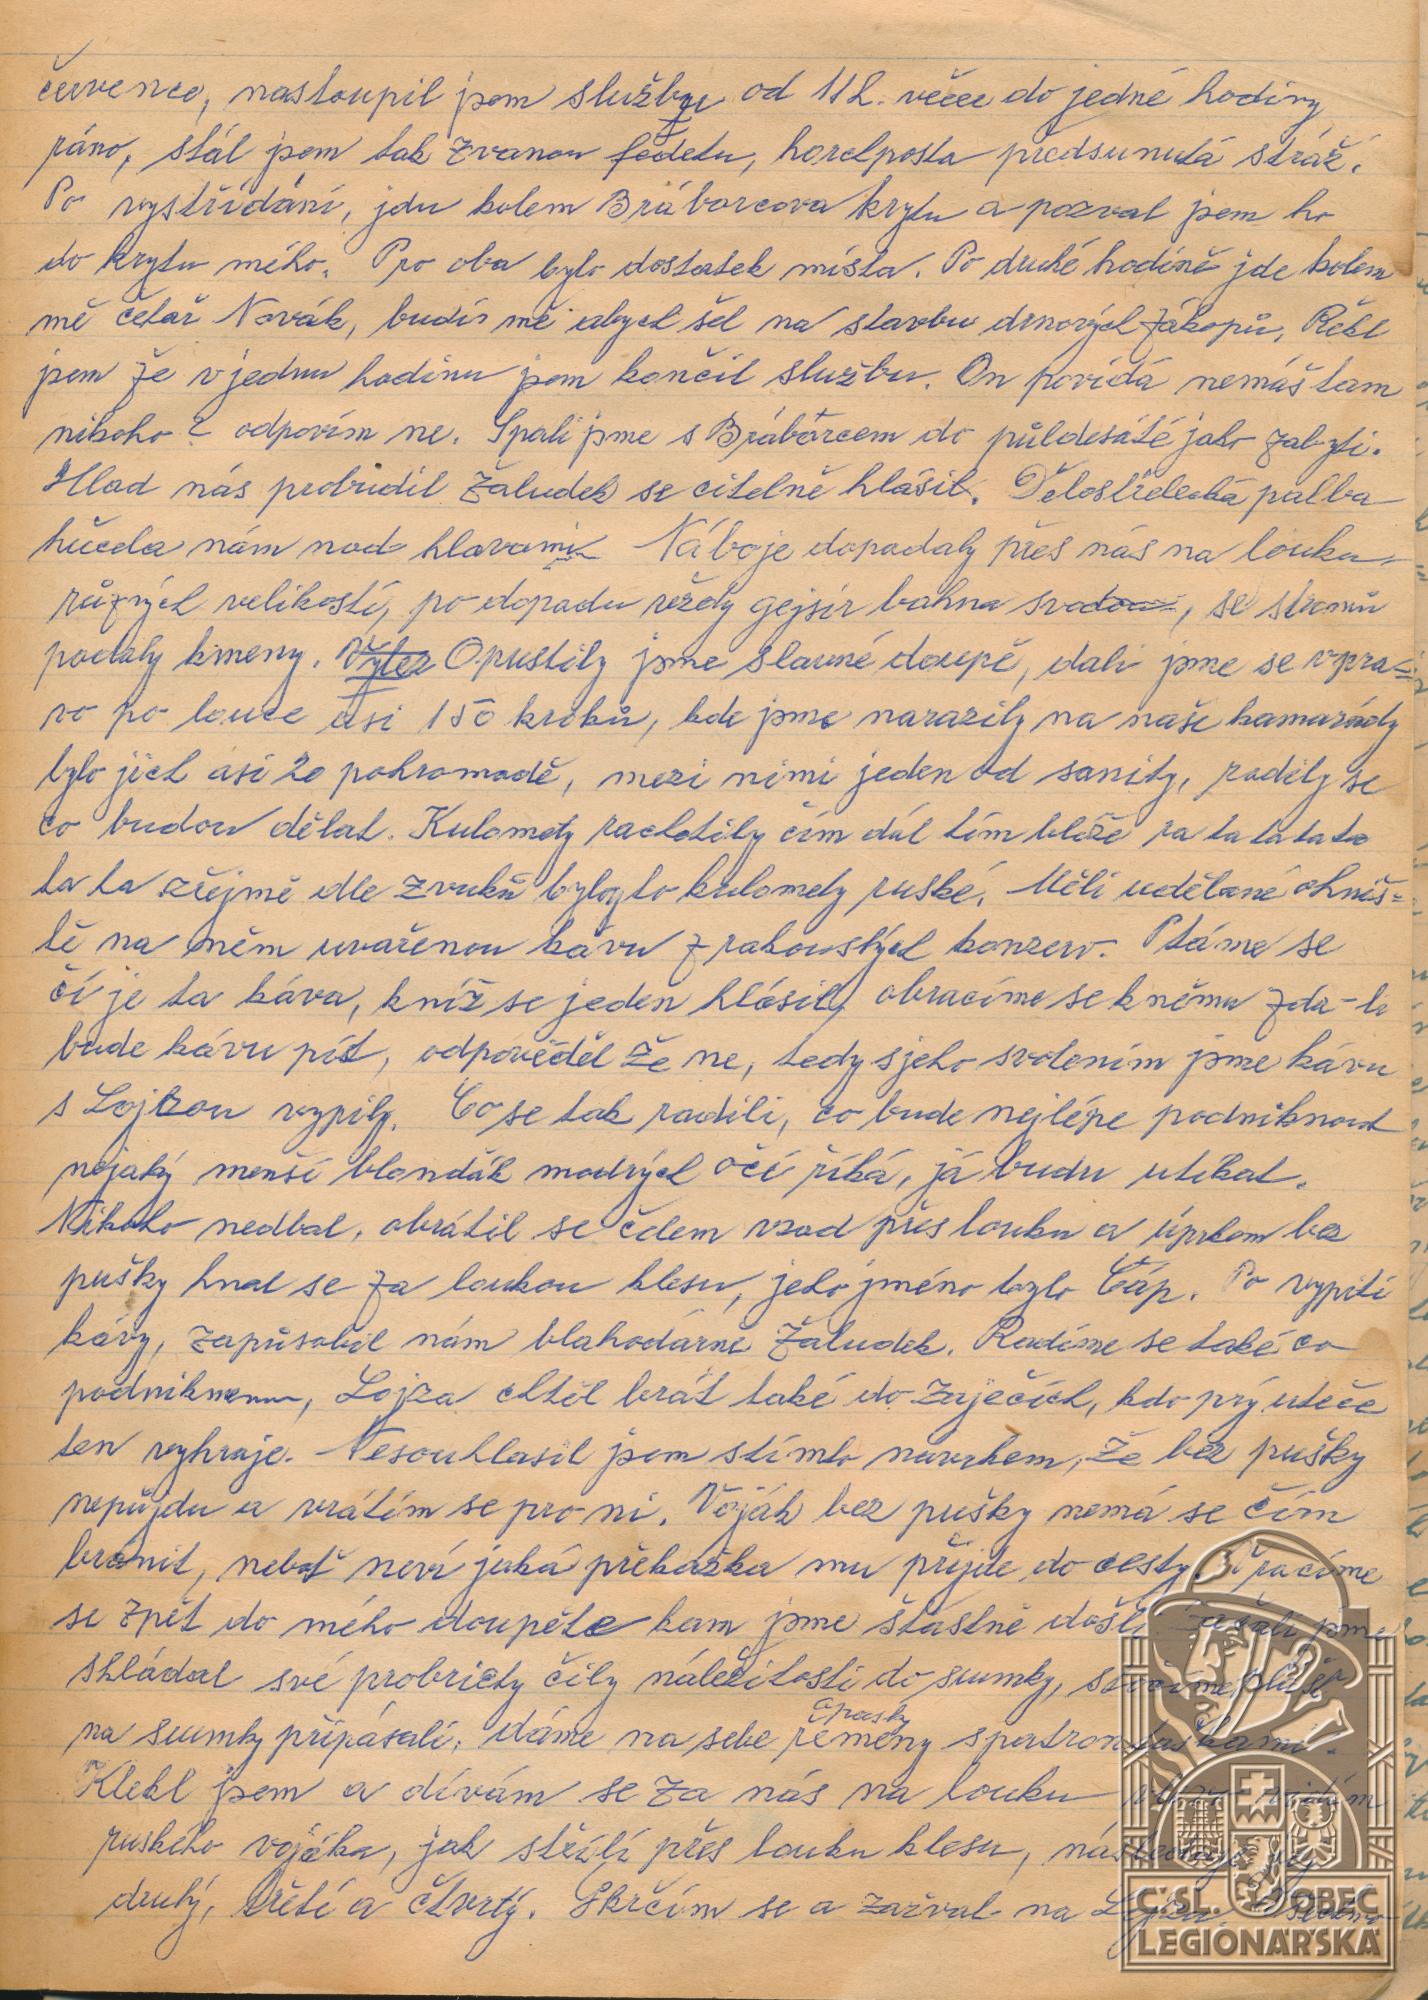 července, nastoupil jsem službu od 11 h. večer do jedné hodiny
ráno, stál jsem tak zvanou fedetu, horchposta předsunutá stráž.
Po vystřídání, jdu kolem Bráborcova krytu a pozval jsem ho
do krytu mého. Pro oba bylo dostatek místa. Po druhé hodině jde kolem
mě četař Novák, budí mě abych šel na stavbu drnových zákopů, Řekl
jsem že v jednu hodinu jsem končil službu. On povídá nemáš tam
nikoho? odpovím ne. Spali jsme s Brábórcem do půldesáté jako zabyti.
Hlad nás probudil žaludek se citelně hlásil. Dělostřelecká palba
hučela nám nad hlavami Náboje dopadaly přes nás na louku
různých velikostí, po dopadu vždy gejsír bahna svodou, se stromů
padaly kmeny. Výlez Opustily jsme slavné doupě, dali jsme se vpra-
vo po louce asi 150 kroků, kde jsme narazily na naše kamarády
bylo jich asi 20 pohromadě, mezi nimi jeden od sanity, radily se
co budou dělat. Kulomety rachotily čím dál tím blíže ra ta ta tata
ta ta zřejmě dle zvuků byly to kulomety ruské. Měli udělané ohniš-
tě na něm uvařenou kávu z rakouských konzerv. Ptáme se
čí je ta káva, kníž se jeden hlásil, obracíme se k němu zda-li
bude kávu pít, odpověděl že ne, tedy sjeho svolením jsme kávu
s Lojzou vypily. Co se tak radili, co bude nejlépe podniknout
nejaký menší blondák modrých očí říká, já budu utíkat.
Nikoho nedbal, obrátil se čelem vzad přes louku a úprkem bez
pušky hnal se za loukou klesu, jeho jméno bylo Čáp. Po vypití
kávy, zapůsobil nám blahodárně žaludek. Radíme se také co
podniknemu, Lojza chtěl brát také do zaječích, kdo prý uteče
ten vyhraje. Nesouhlasil jsem stímto navrhem, že bez pušky
nepůjdu a vrátím se pro ni. Voják bez pušky nemá se čím
bránit, neboť neví jaká překažka mu přijde do cesty. Vracíme
se zpět do mého doupěte kam jsme šťastně došli Začali jsme
skládat své probricty čily náležitosti do sumky, plášť
na sumky připásali, dáme na sebe řemeny opasky spatrontaškami.
Klekl jsem a dívám se za nás na louku vidím
ruského vojáka, jak střílí přes louku klesu, následuje
druhý, třetí a čtvrtý. Skrčím se a zařval na Lojzu
Č.SL. OBEC
LEGIONÁŘSKÁ